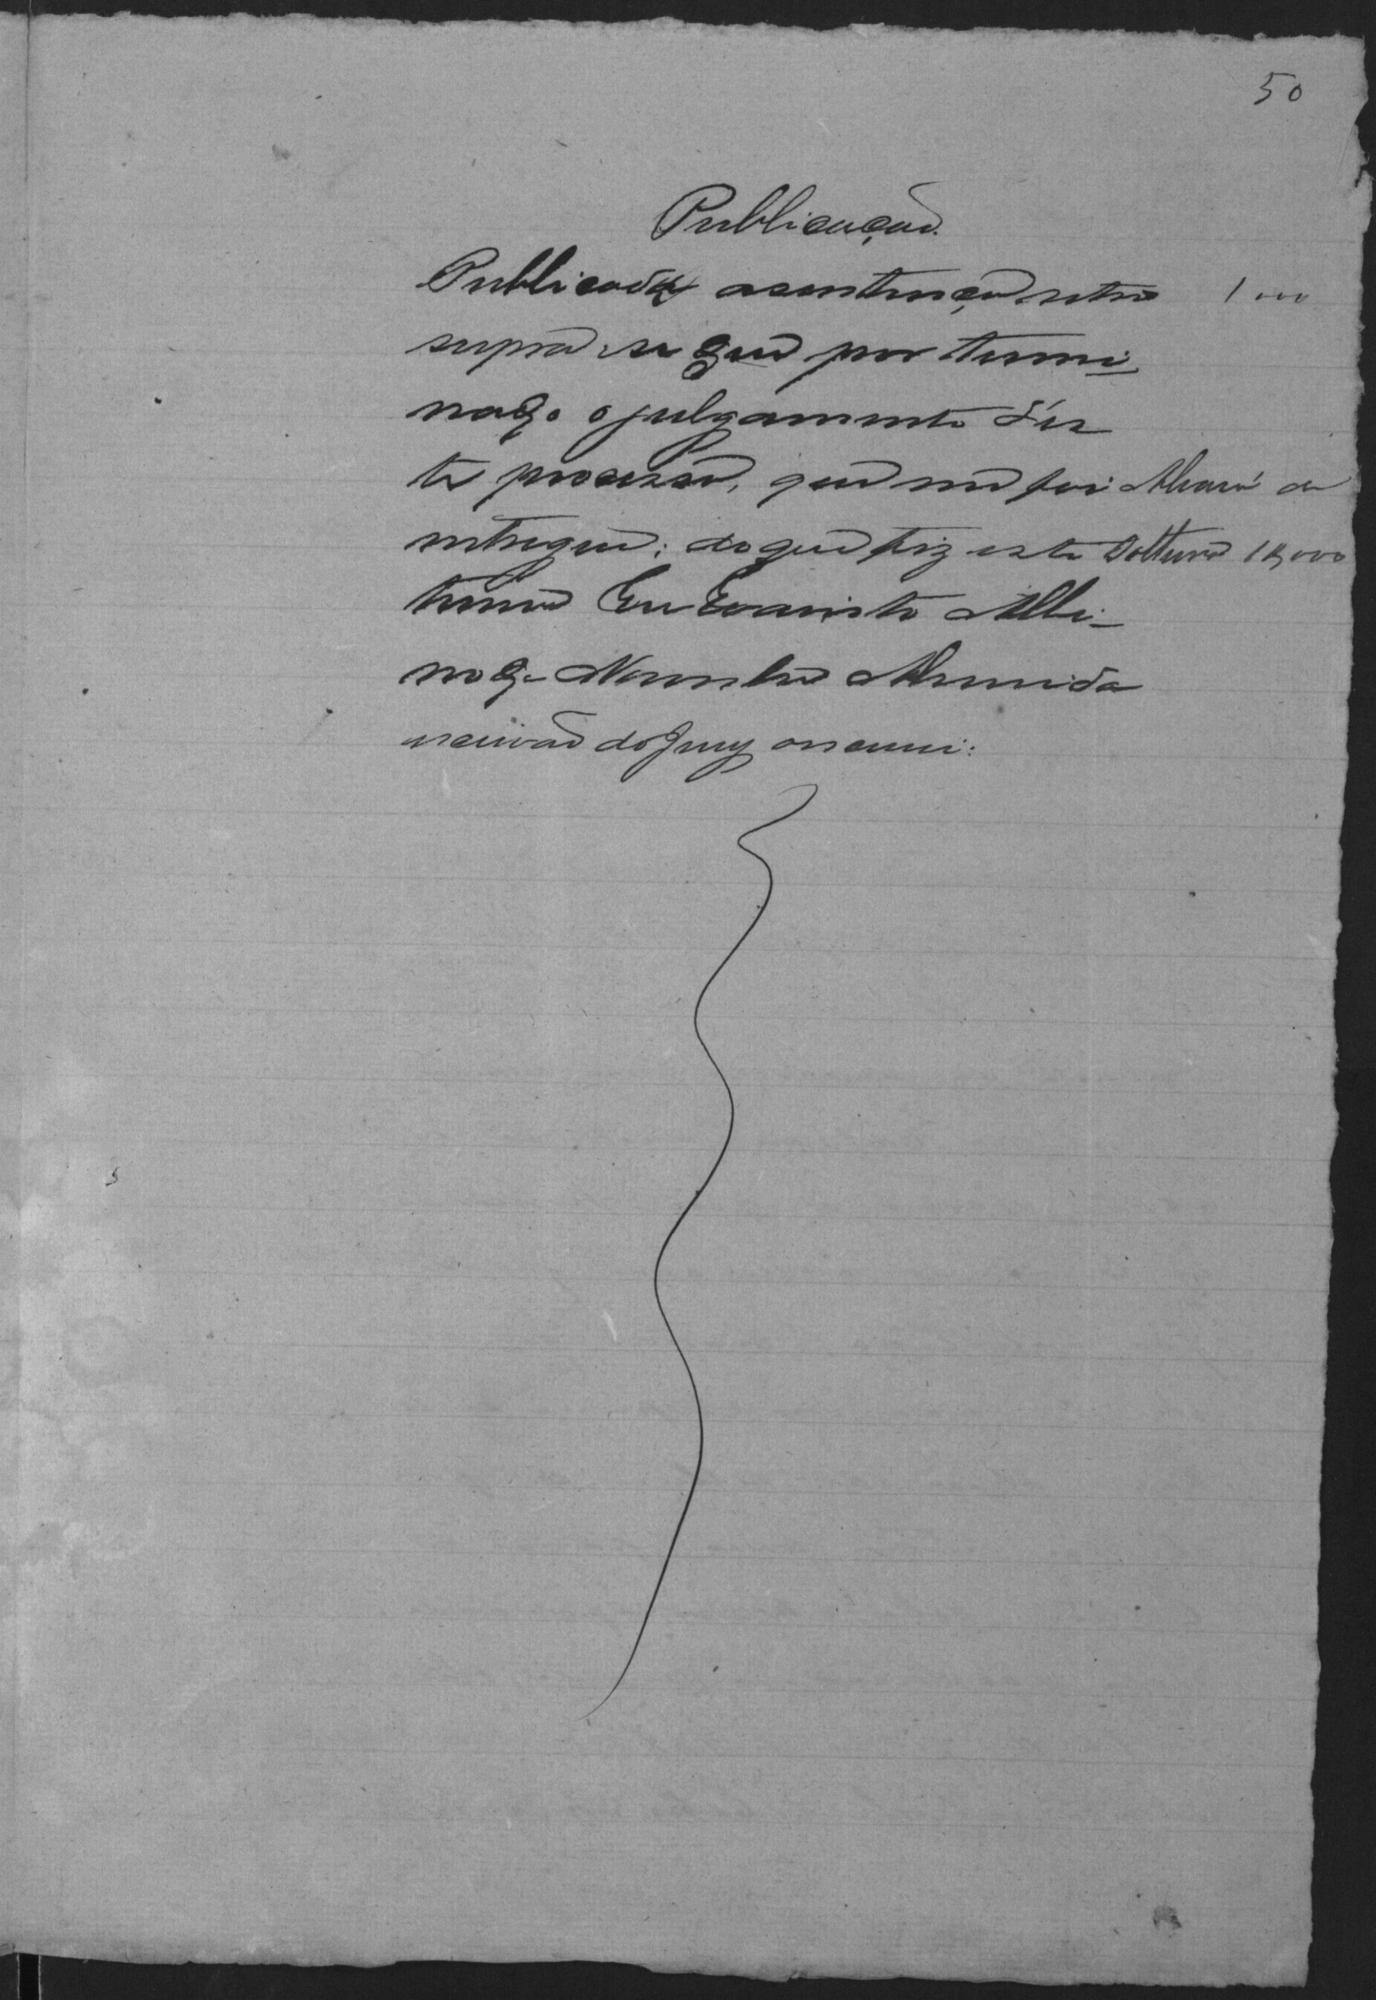 50
Publicação.
Publicada asentença retro 1000
supra se que por termi-
nado o julgamento d'es
te processo, que me foi Alvará de
entregue; do que fiz este Soltura 1$000
termo Eu Evaristo Albi-
no de Almeida
escrivão do Jury escrevi: